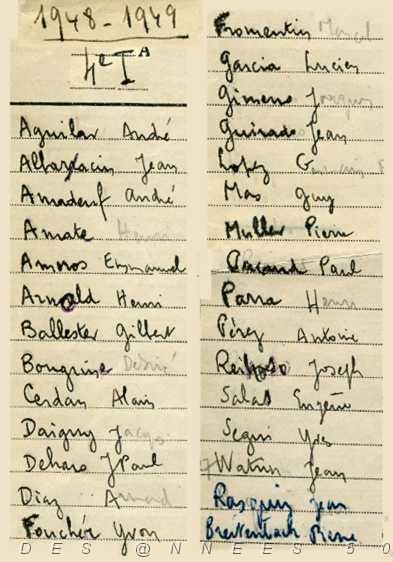 1948-1949
4e I A
Aguilar André
Albaracin Jean
Amadeuf André
Amate Henri
Amoros Emmanuel
Arnold Henri
Ballester Gilbert
Bougrine Désiré
Cerdan Alain
Daigny Jacqs
Deharo JPaul
Diaz Armand
Fouchér Yvon
Fromentin Marcel
Garcia Lucien
Gimeno Jacques
Guirado Jean
Lopez
Mas Guy
Muller Pierre
Paul
Parra Henri
Pérez Antoine
Joseph
Salas Eugène
Segui Yves
Watrin Jean
Rasquin Jean
Breitenbach Pierre
DES @NNEES 50